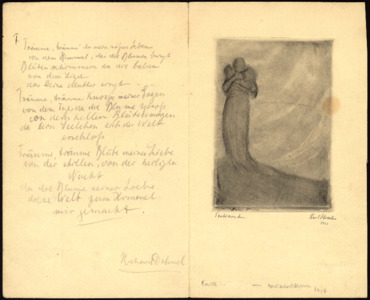 Träume, träume, du mein süßes Leben
von dem Himmel, der die Blumen bringt
Blüten schimmern da die beben
von dem Lied
das deine Mutter singt
Träume, träume Knospe meiner Sorgen
von dem Tage da die Blume sproß
von dem hellen Blütenmorgen
da dein Seelchen sich der Welt
erschloß
Träume, träume Blüte meiner Liebe
von der stillen, von der heiligen
Nacht
da die Blume seiner Liebe
diese Welt zum Himmel
mir gemacht
Richard Dehmel